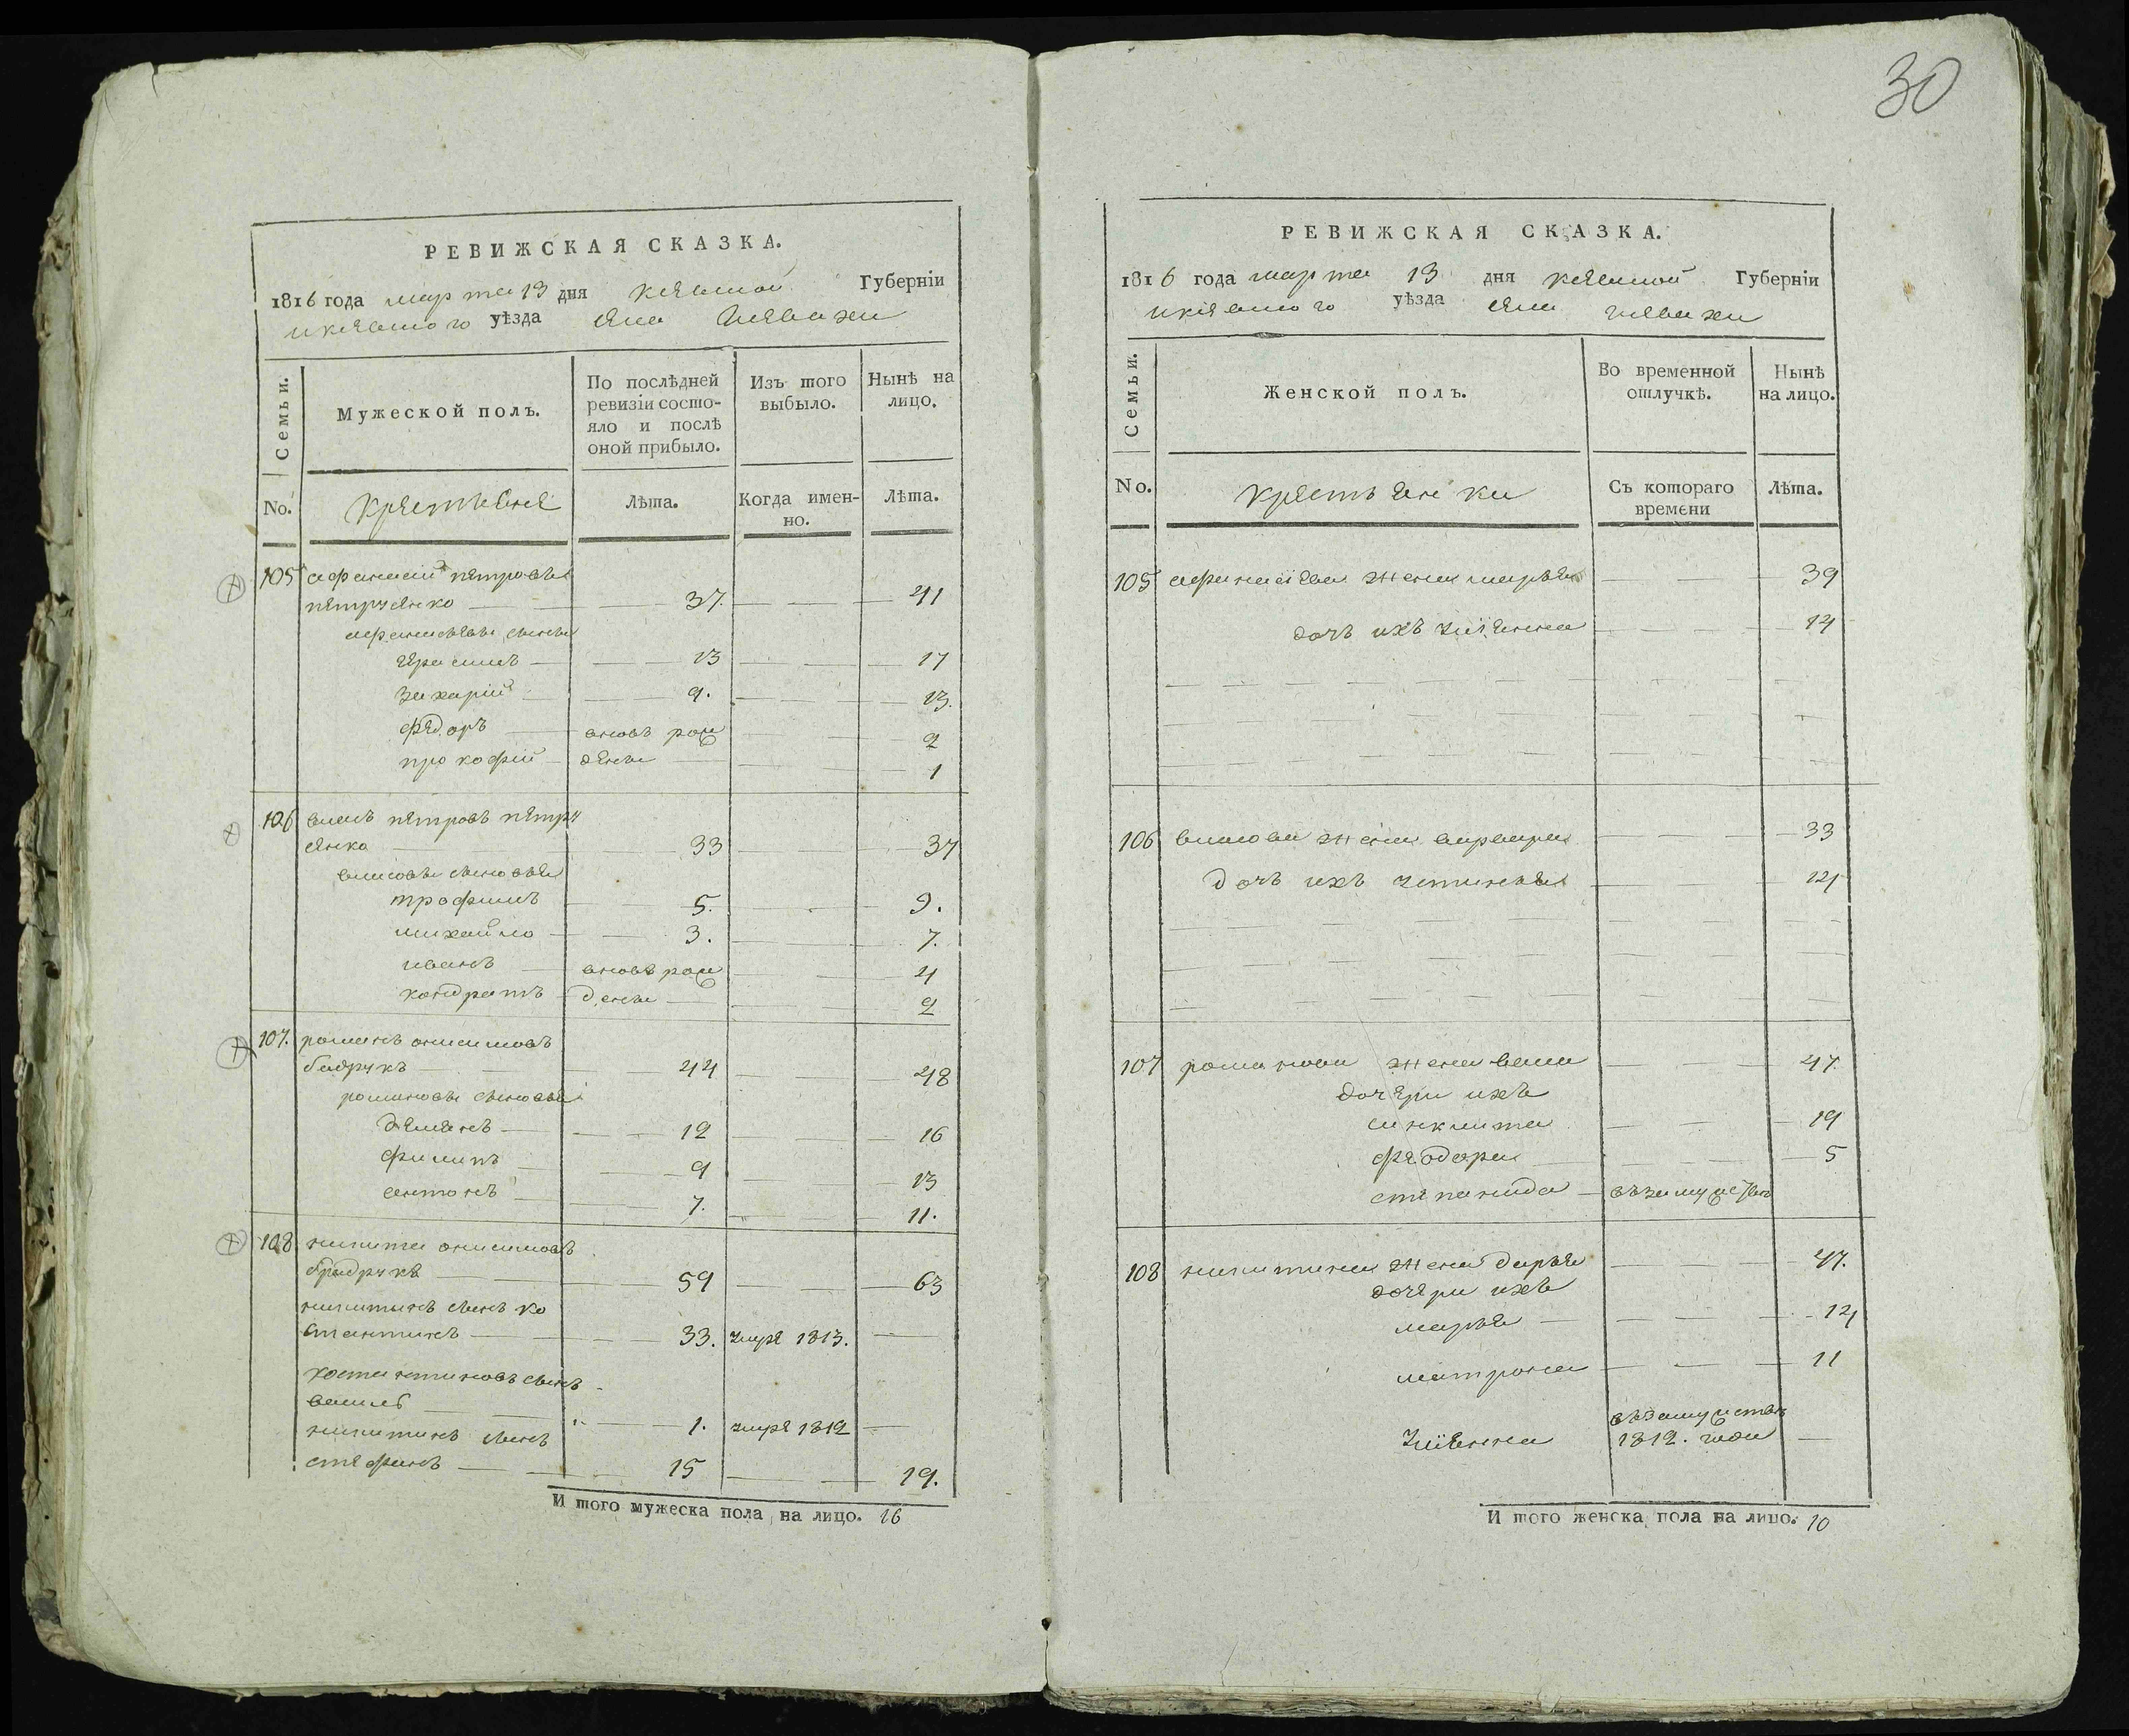 30
РЕВИЖСКАЯ СКАЗКА.
1816 года марта 13 дня киевской Губерніи
и киевского уѣзда села
Семьи.
Мужеской полъ.
По послѣдней ревизіи состояло и послѣ оной прибыло.
Изъ того выбыло.
Нынѣ на лицо.
No.
крестьяне
Лѣта.
Когда именно.
Лѣта.
105 афанасий петровъ
петрученко 37. 41
афанасьевы сыновья
герасимъ 13 17
захарій 9. 13.
федоръ вновь рож 2
прокофій дены 1
106 власъ петровъ петру
ченко 33 37
власовы сыновья
трофимъ 5. 9.
михайло 3. 7.
иванъ вновь рож 4
кондратъ дены 2
107. романъ онисимовъ
44 48
романовы сыновья
демянъ 12 16
филипъ 9 13
антонъ 7. 11.
108 никита онисимовъ
59 63
никитинъ сынъ ко
стантинъ 33. умре 1813.
костантиновъ сынъ
василь 1. умре 1812
никитинъ сынъ
стефанъ 15 19.
И того мужеска пола на лицо. 16
РЕВИЖСКАЯ СКАЗКА.
1816 года марта 13 дня киевской Губерніи
и киевского уѣзда села
Семьи.
Женской полъ.
Во временной отлучкѣ.
Нынѣ на лицо.
No.
крестьянки
Съ котораго времени
Лѣта.
105 афанасіева жена марья 39
дочь ихъ 14
106 власова жена варвара 33
дочь ихъ устинья 14
107 романова жена васса 47.
дочери ихъ
19
феодора 5
степанида въ замужестве
108 никитина жена дарья 47.
дочери ихъ
марья 14
матрона 11
въ замужестве
1812. года
И того женска пола на лицо. 10